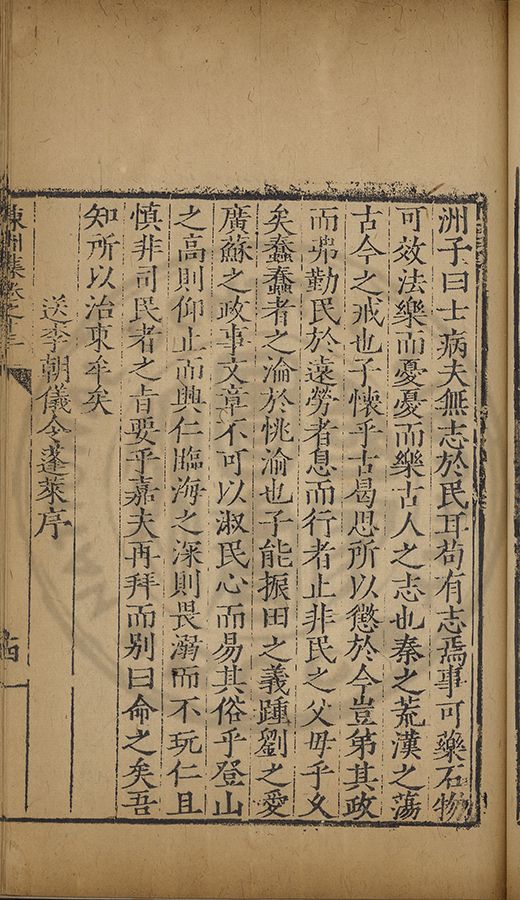 洲子曰士病夫無志於民耳苟有志焉事可藥石物
可效法樂而憂憂而樂古人之志也秦之荒漢之蕩
古今之戒也子懷乎古曷思所以懲於今豈第其政
而弗勤民於遠勞者息而行者止非民之父母乎久
矣蠢蠢者之淪於恌渝也子能振田之義踵劉之愛
廣蘇之政事文章不可以淑民心而易其俗乎登山
之高則仰止而興仁臨海之深則畏溺而不玩仁且
慎非司民者之旨要乎嘉夫再拜而別曰命之矣吾
知所以治東牟矣
送李朝儀令蓬萊序
東洲集卷之十三